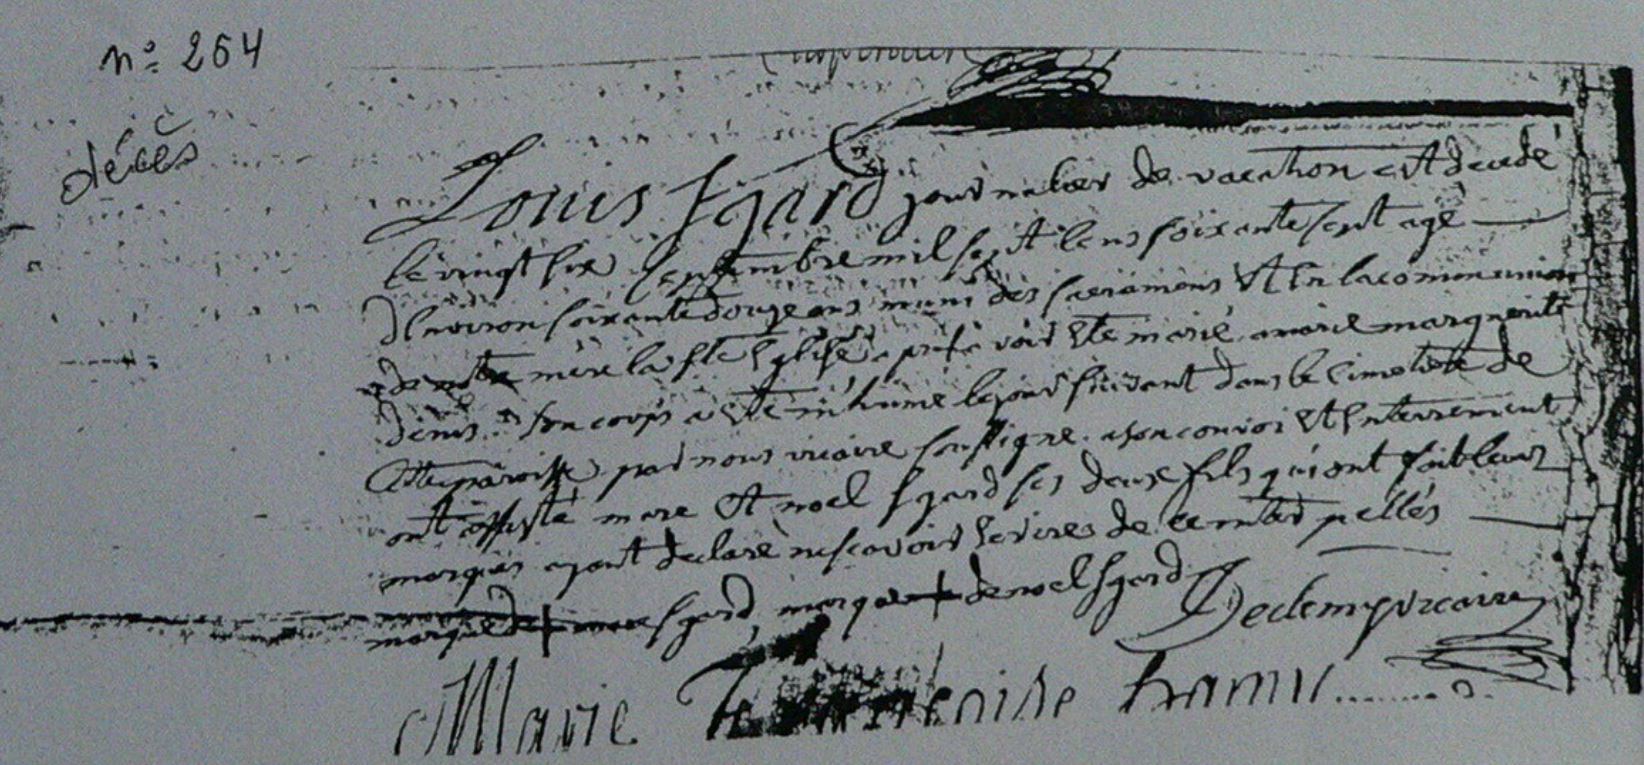 n° 264
décès
Louis Sgard journalier de vacation est decedé
le vingt six septembre mil sept cens soixante sept agé
d'environ soixante douze ans muni des sacremens et en la communion
de notre mere la ste Eglise apres avoir ete marié a marie marguerite
denis. Son corps a ete inhumé le jour suivant dans le cimetiere de
cette paroisse par nous vicaire soussigné. a son convoi et enterrement
ont assisté marc et noel Sgard ses deux fils qui ont fait leurs
marques ayant declaré ne scavoir ecrire de ce interpellés
marque de + marc Sgard marque + de noel Sgard
vicaire
Marie francoise